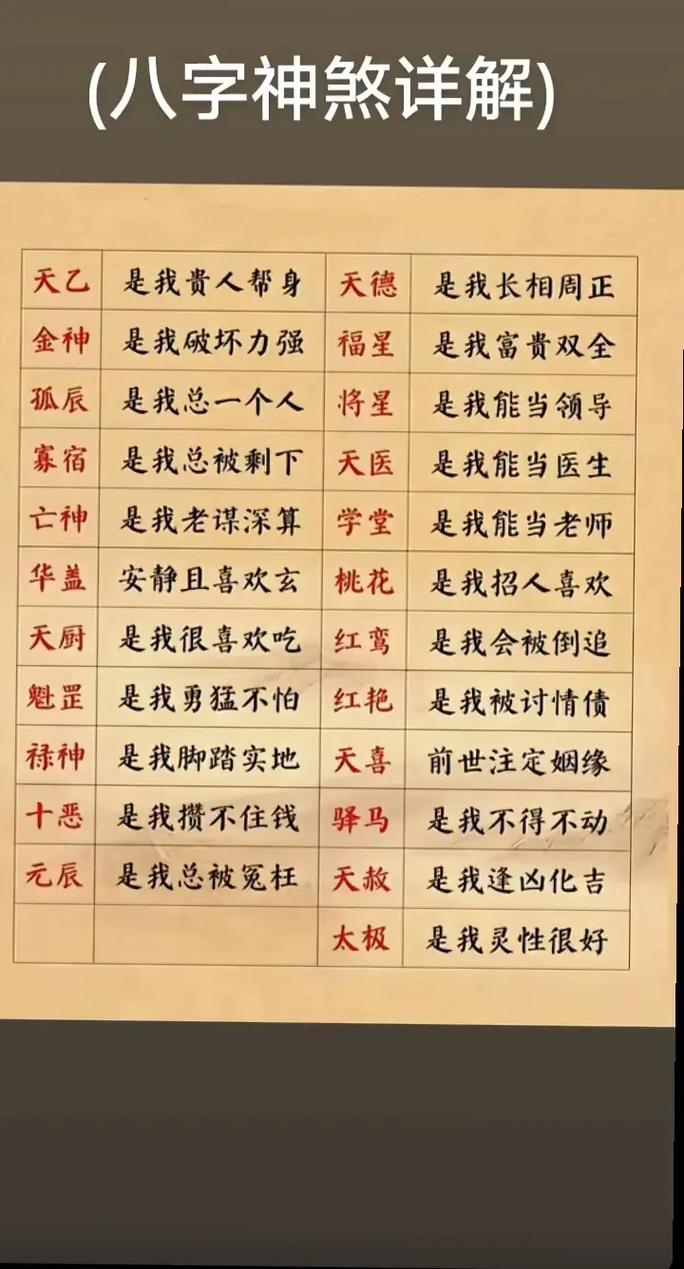 (八字神煞详解)
天乙 是我貴人帮身 天德 是我长相周正
金神 是我破坏力强 福星 是我富贵双全
孤辰 是我总一个人 将星 是我能当领导
寡宿 是我总被剩下 天医 是我能当医生
亡神 是我老谋深算 学堂 是我能当老师
华盖 安静且喜欢玄 桃花 是我招人喜欢
天厨 是我很喜欢吃 红鸾 是我会被倒追
魁罡 是我勇猛不怕 红艳 是我被讨情债
禄神 是我脚踏实地 天喜 前世注定姻缘
十恶 是我攒不住钱 驿马 是我不得不动
元辰 是我总被冤枉 天赦 是我逢凶化吉
太极 是我灵性很好